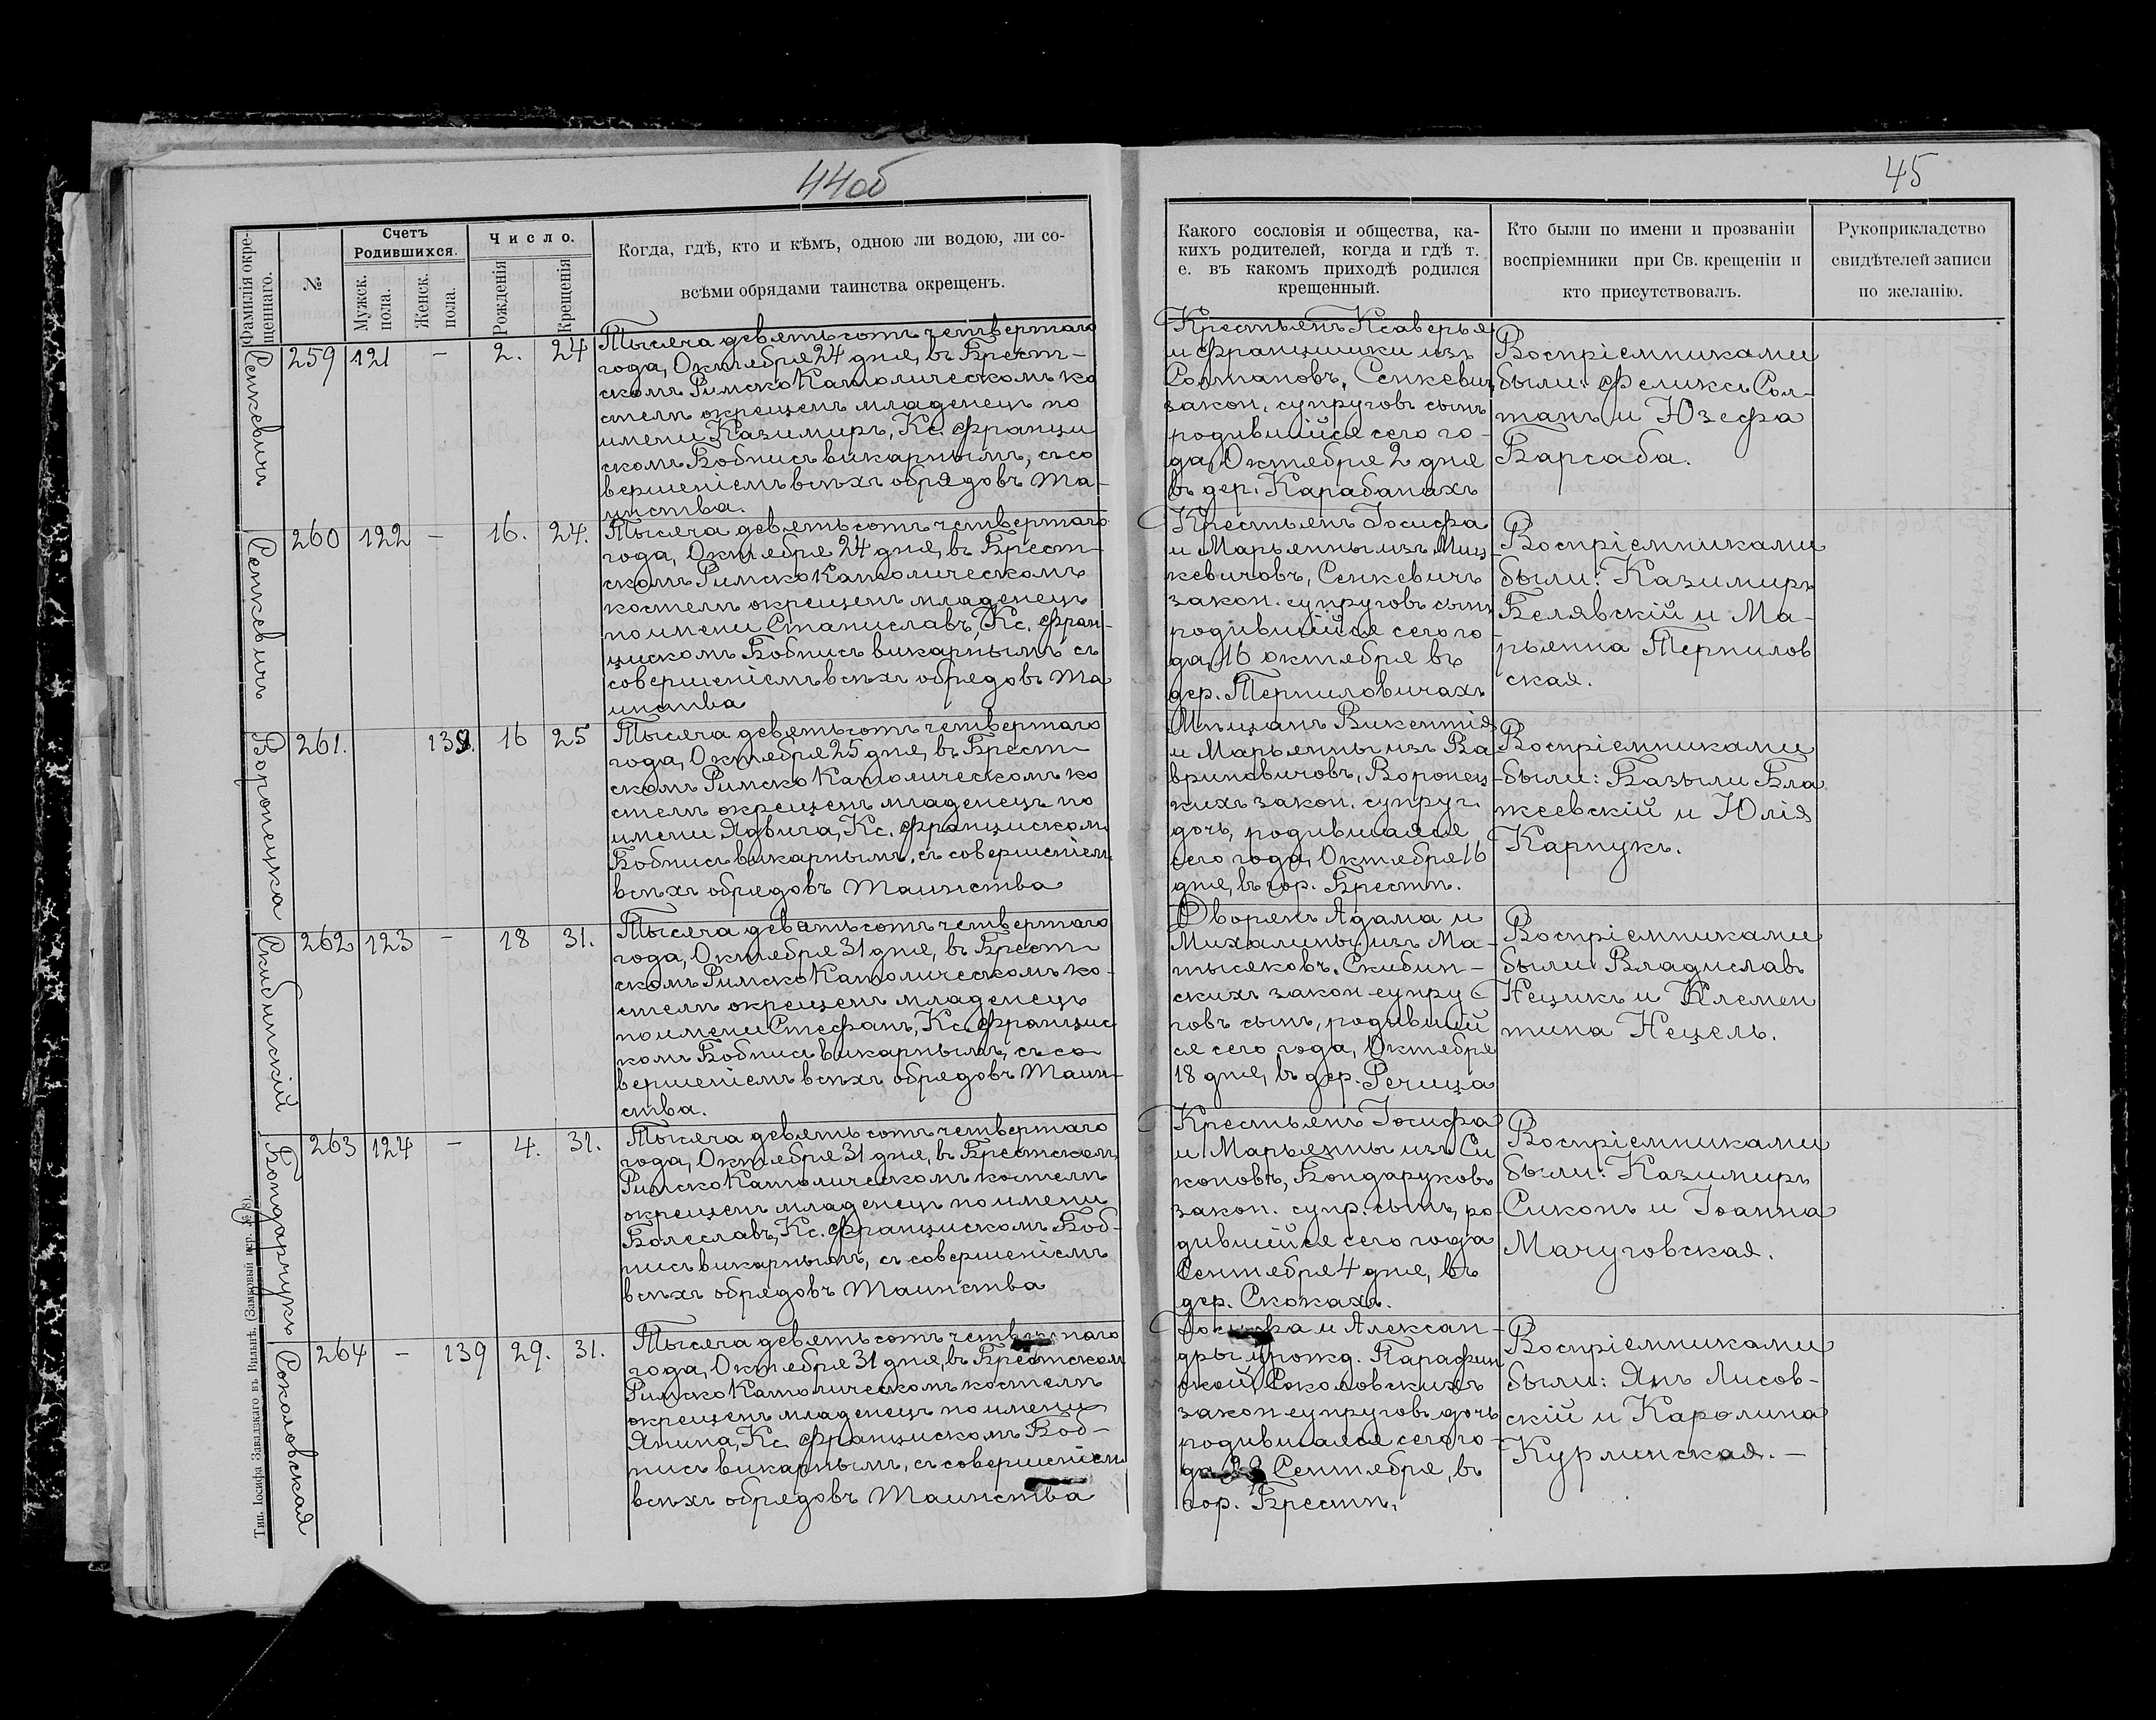 44об
45
Фамилія окре-
щеннаго.
№
Счетъ
Родившихся.
Мужск.
пола.
Женск.
пола.
Число.
Рожденія
Крещенія
Когда, гдѣ, кто и кѣмъ, одною ли водою, ли со-
всѣми обрядами таинства окрещенъ.
Какого сословія и общества, ка-
кихъ родителей, когда и гдѣ т.
е. въ какомъ приходѣ родился
крещенный.
Кто были по имени и прозванію
воспріемники при Св. крещеніи и
кто присутствовалъ.
Рукоприкладство
свидѣтелей записи
по желанію.
Сенкевичъ
259 121 – 2. 24
Тысяча девятьсотъ четвертаго
года, Октября 24 дня, въ Брест-
скомъ Римско Католическомъ ко
стелѣ окрещенъ младенецъ по
имени Казимиръ, Кс. Францы
скомъ Бобнисъ викарнымъ, съ со
вершеніемъ всѣхъ обрядовъ Та-
инства.
Крестьянъ Ксаверья
и Францишки изъ
Солтановъ, Сенкевич
закон. супруговъ сынъ
родившійся сего го-
да, Октября 2 дня
въ дер. Карабанахъ
Воспріемниками
были: Феликсъ Сол-
танъ и Юзефа
Барсаба.
Сенкевичъ
260 122 – 16. 24.
Тысяча девятьсотъ четвертаго
года, Октября 24 дня, въ Брест-
скомъ Римско Католическомъ
костелѣ окрещенъ младенецъ
по имени Станиславъ, Кс. Фран-
цискомъ Бобнисъ викарнымъ съ
совершеніемъ всѣхъ обрядовъ Та
инства
Крестьянъ Іосифа
и Марьянны изъ Миц-
кевичовъ, Сенкевичъ
закон. супруговъ сынъ
родившійся сего го-
да, 16 октября въ
дер. Терпиловичахъ
Воспріемниками
были: Казимиръ
Белявскій и Ма-
рьянна Терпилов
ская.
Воронецука
261. 138. 16 25
Тысяча девятьсотъ четвертаго
года, Октября 25 дня, въ Брест-
скомъ Римско Католическомъ ко
стелѣ окрещенъ младенецъ по
имени Ядвига, Кс. Францискомъ
Бобнисъ викарнымъ, съ совершеніем
всѣхъ обрядовъ Таинства
Мѣщанъ Викентія
и Марьянны изъ Ва
вриновичовъ, Воронец-
кихъ закон. супруг.
дочь, родившаяся
сего года, Октября 16
дня, въ гор. Брестѣ.
Воспріемниками
были: Базыли Бла
жеевскій и Юлія
Карпукъ.
Скибинскій
262 123 – 18 31.
Тысяча девятьсотъ четвертаго
года, Октября 31 дня, въ Брест-
скомъ Римско Католическомъ ко-
стелѣ окрещенъ младенецъ
по имени Стефанъ, Кс. Францис
комъ Бобнисъ викарнымъ, съ со
вершеніемъ всѣхъ обрядовъ Таин-
ства.
Дворянъ Адама и
Михалины изъ Ма-
тысяковъ, Скибин-
скихъ закон супру
говъ сынъ, родивший
ся сего года, Октября
18 дня, въ дер. Речица
Воспріемниками
были Владиславъ
Нецикъ и Клемен
тина Нецель.
Бондарчукъ
263 124 – 4. 31.
Тысяча девятьсотъ четвертаго
года, Октября 31 дня, въ Брестском
Римско Католическомъ костелѣ
окрещенъ младенец по имени
Болеславъ, Кс. Францискомъ Боб-
нисъ викарнымъ, съ совершеніемъ
всѣхъ обрядовъ Таинства
Крестьянъ Іосифа
и Марьянны изъ Си
коповъ, Бондаруковъ
закон. супр. сынъ, ро-
дившийся сего года
Сентября 4 дня, въ
дер. Скоках.
Воспріемниками
были: Казимиръ
Сиконъ и Іоанна
Мачуговская.
Соколовская
264 – 139 29. 31.
Тысяча девятьсотъ четвертаго
года, Октября 31 дня, въ Брестском
Римско Католическомъ костелѣ
окрещенъ младенецъ по имени
Янина, Кс. Францискомъ Боб-
нисъ викарнымъ, съ совершеніем
всѣхъ обрядовъ Таинства
Іосифа и Алексан-
дры урожд. Парафин
ской, Соколовскихъ
закон супруговъ дочь
родившаяся сего го-
да Сентября, въ
гор. Брестѣ.
Воспріемниками
были: Янъ Лисов-
скій и Каролина
Курлинская. –
Тип. Іосифа Завадзкаго въ Вильнѣ. (Замковый пер. № 8).